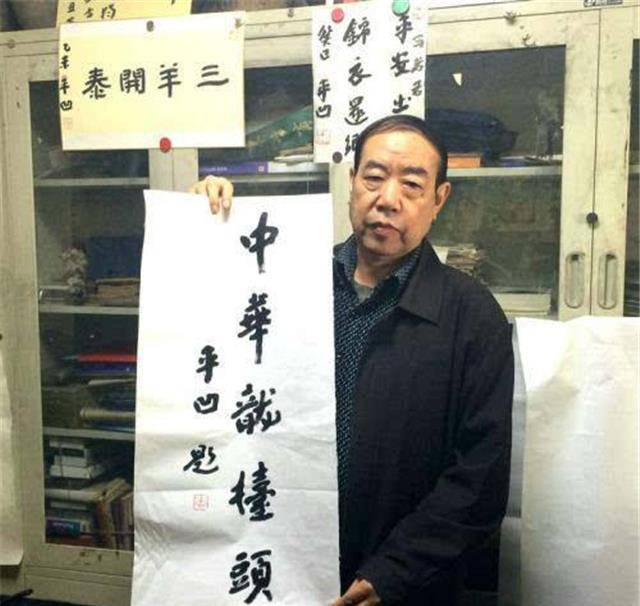 三羊開泰
乙未 平凹
平安出
錦衣還
癸巳 平凹
中華龍檯頭
平凹題